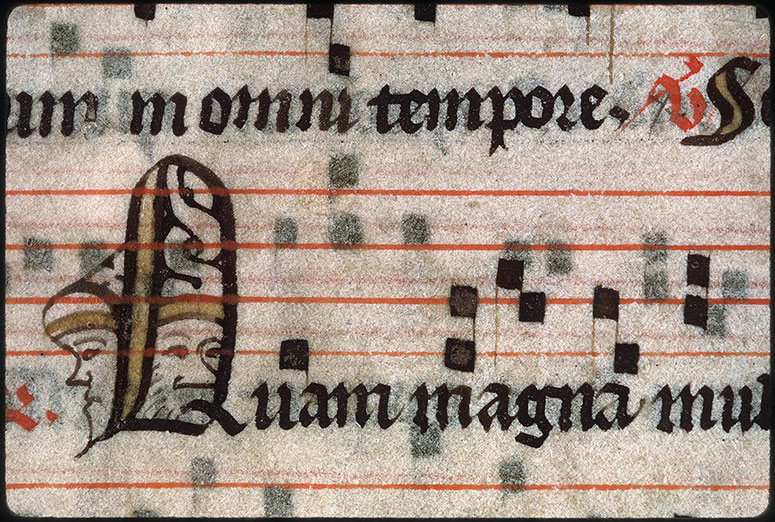 um in omni tempore. V. S
Quam magna mul